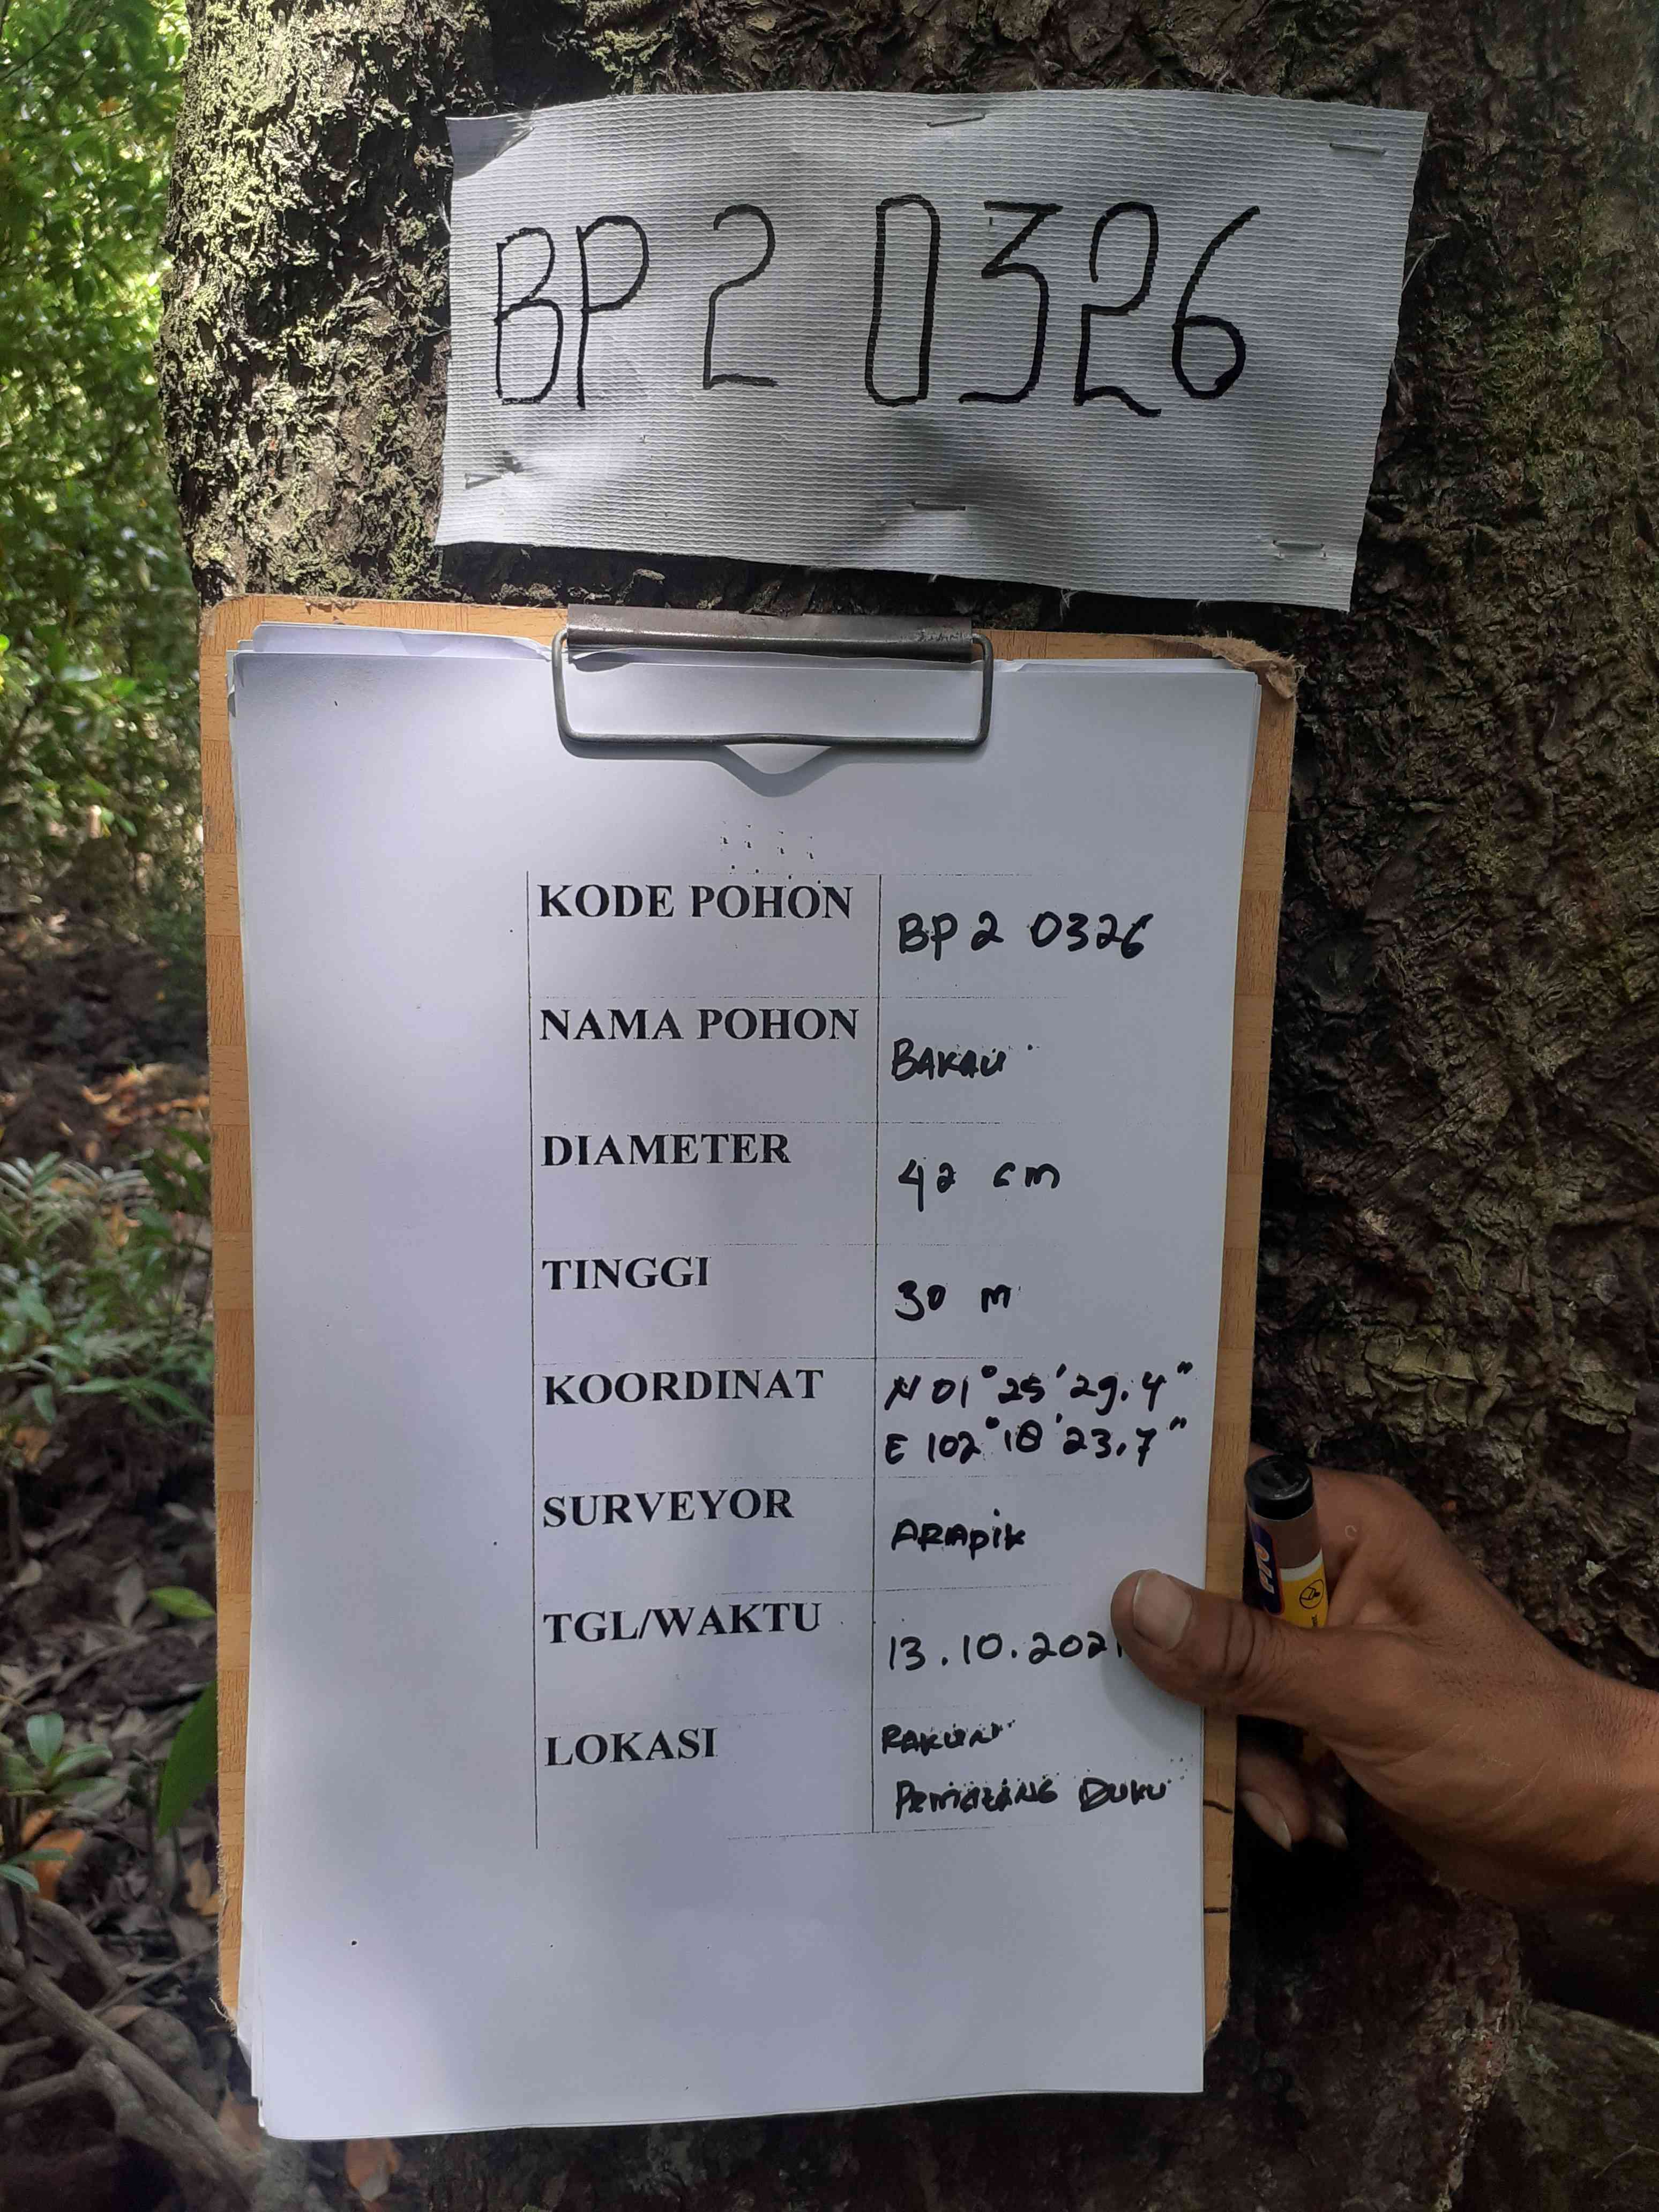 BP 2 0326
KODE POHON BP 2 0326
NAMA POHON BAKAU
DIAMETER 42 cm
TINGGI 30 m
KOORDINAT N 01° 25' 29.4"
E 102° 18' 23.7"
SURVEYOR ARAPIK
TGL/WAKTU 13.10.2021
LOKASI
DUKU